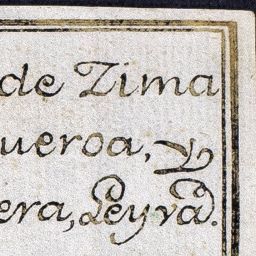 de Zima
ueroa, y
era, Leyva.